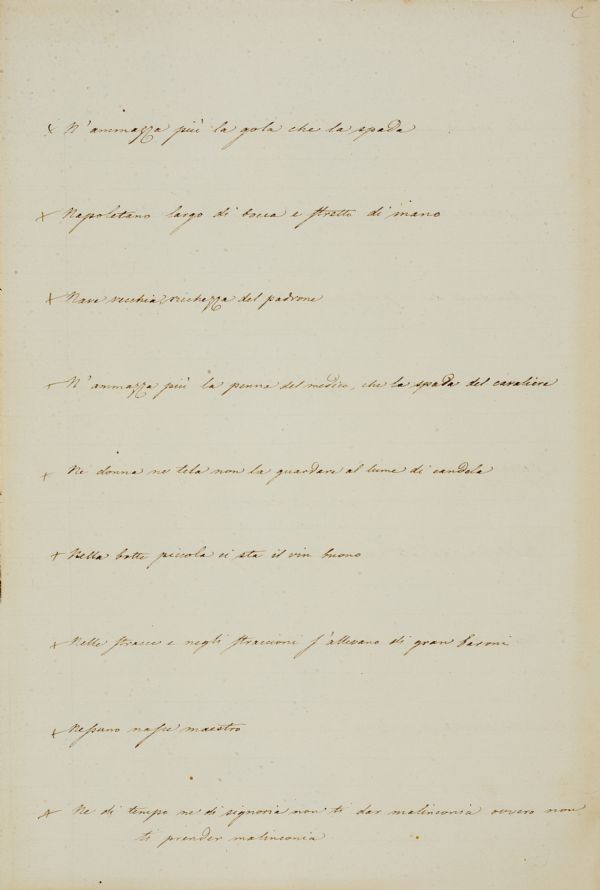 C
x N'ammazza più la gola che la spada
x Napoletano largo di bocca e stretto di mano
x Nave vecchia ricchezza del padrone
x N'ammazza più la penna del medico, che la spada del cavaliere
x Ne donna ne tela non la guardare al lume di candela
x Nella botte piccola ci sta il vin buono
x Nelle stracce e negli straccioni s'allevano di gran baroni
x Nessuno nasce maestro
x Ne di tempo ne di signoria non ti dar malinconia ovvero non
ti prender malinconia